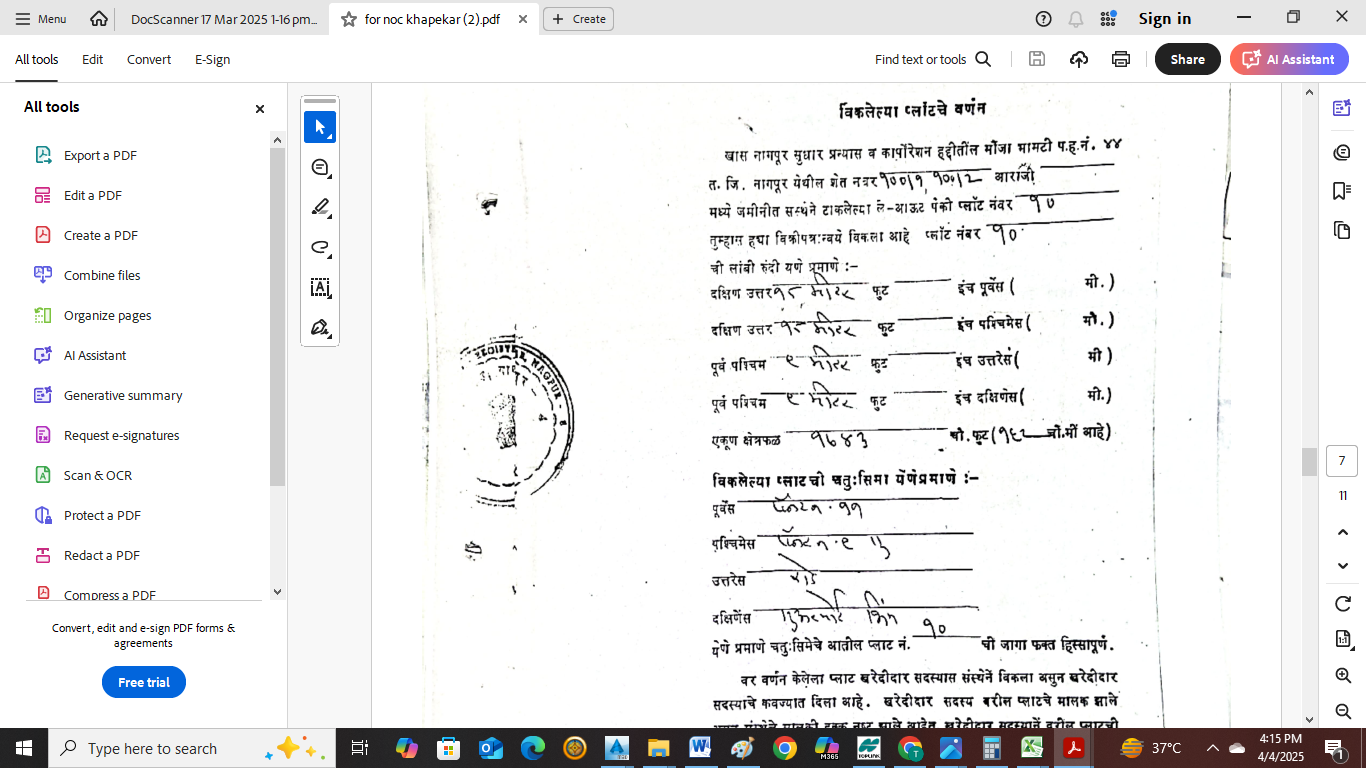 Menu
DocScanner 17 Mar 2025 1-16 pm...
for noc khapekar (2).pdf
Create
Sign in
All tools
Edit
Convert
E-Sign
Find text or tools
Share
AI Assistant
All tools
Export a PDF
Edit a PDF
Create a PDF
Combine files
Organize pages
AI Assistant
Generative summary
Request e-signatures
Scan & OCR
Protect a PDF
Redact a PDF
Compress a PDF
Convert, edit and e-sign PDF forms & agreements
Free trial
विकलेल्या प्लॉटचे वर्णन
खास नागपूर सुधार प्रन्यास व कार्पोरेशन हद्दीतील मौजा भामटी प.ह.नं. ४४
त. जि. नागपूर येथील शेत नंबर १००/१, १००/२ आराजी
मध्ये जमीनीत संस्थेने टाकलेल्या ले-आऊट पैकी प्लॉट नंबर १०
तुम्हास ह्या विक्रीपत्रान्वये विकला आहे प्लॉट नंबर १०
ची लांबी रुंदी येणे प्रमाणे :-
दक्षिण उत्तर १८ मीटर फुट इंच पूर्वेस ( मी.)
दक्षिण उत्तर १८ मीटर फुट इंच पश्चिमेस ( मी.)
पूर्व पश्चिम ९ मीटर फुट इंच उत्तरेस ( मी)
पूर्व पश्चिम ९ मीटर फुट इंच दक्षिणेस ( मी.)
एकूण क्षेत्रफळ १७४३ चौ.फुट (१६२ चौ.मी आहे)
विकलेल्या प्लाटची चतुःसिमा येणेप्रमाणे :-
पूर्वेस प्लॉट न. ११
पश्चिमेस प्लॉट न. ९
उत्तरेस रोड
दक्षिणेस
येणे प्रमाणे चतुःसिमेचे आतील प्लाट नं. १० ची जागा फक्त हिस्सापूर्ण.
वर वर्णन केलेला प्लाट खरेदीदार सदस्यास संस्थेनें विकला असुन खरेदीदार
सदस्याचे कवज्यात दिला आहे. खरेदीदार सदस्य वरील प्लाटचे मालक झाले
REGISTER NAGPUR
7
11
Type here to search
37°C
4:15 PM
4/4/2025